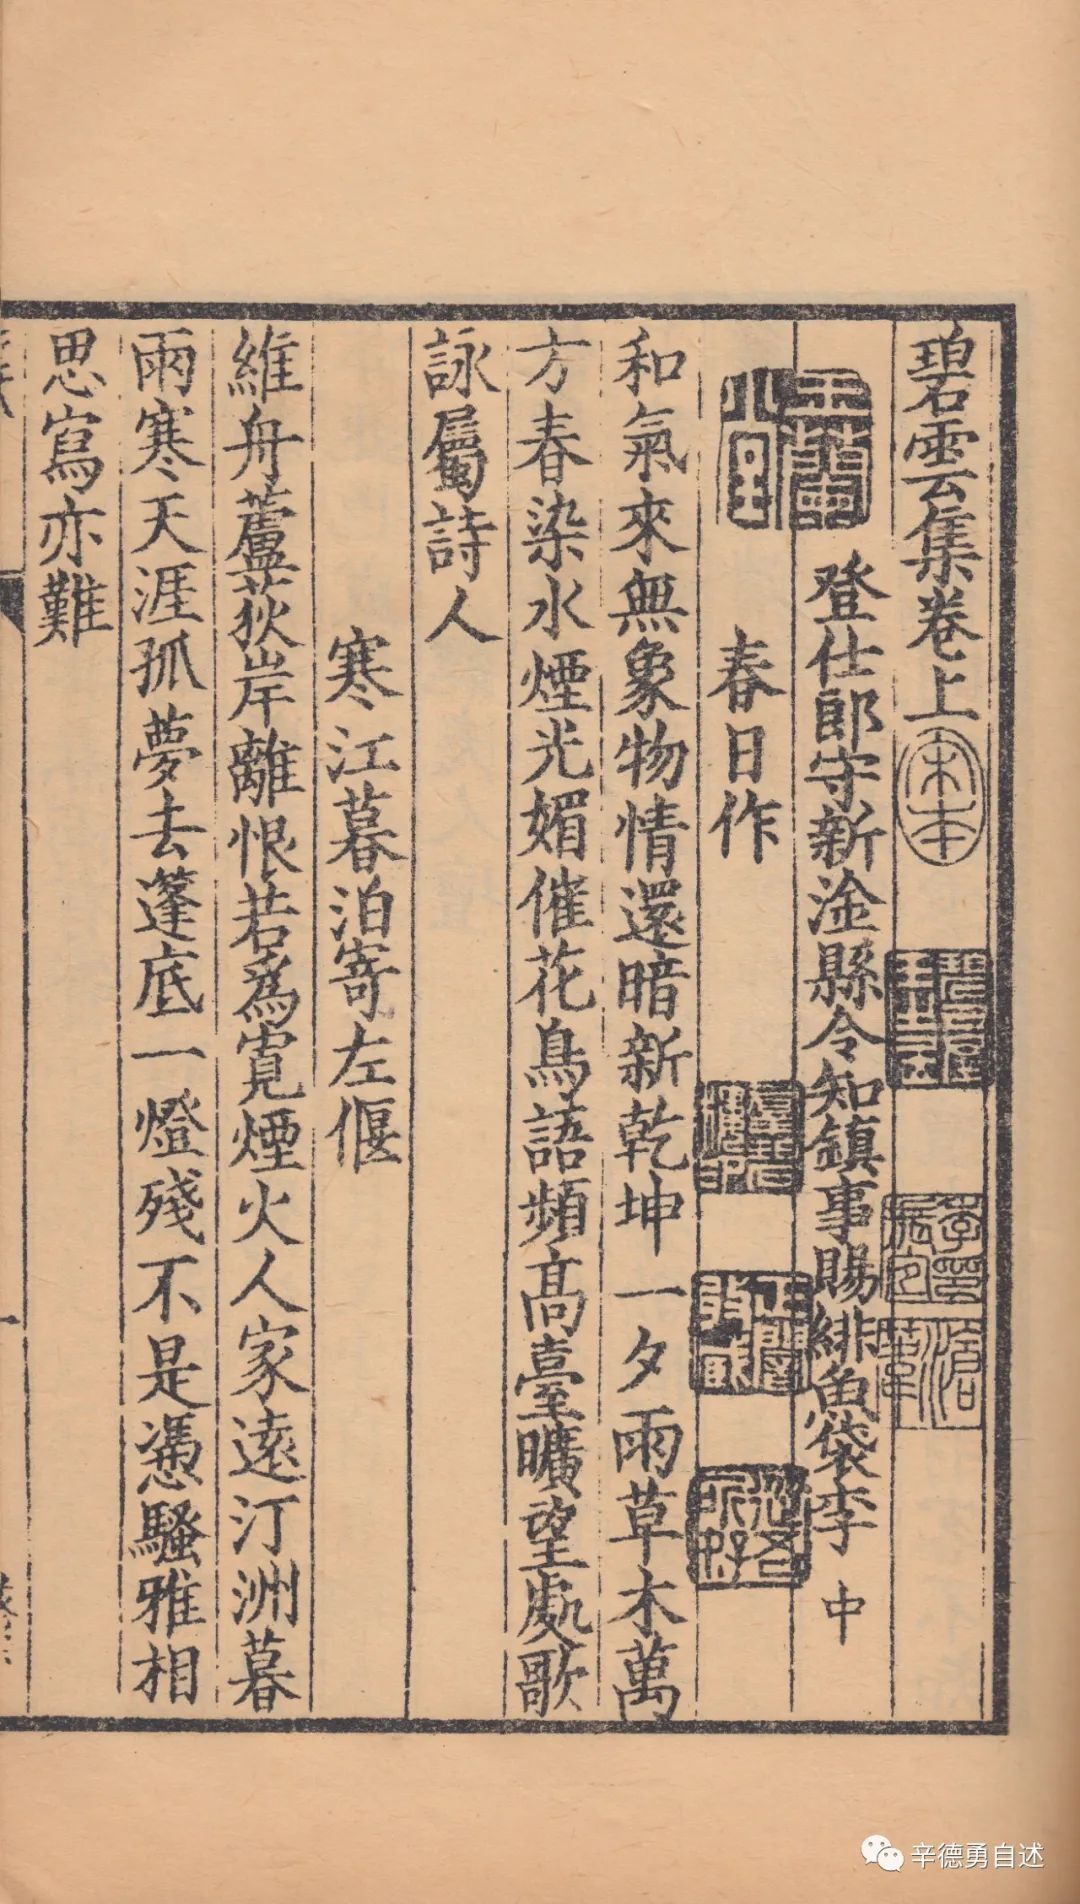 碧雲集卷上
宋本
登仕郎守新淦縣令知鎮事賜緋魚袋李 中
春日作
和氣來無象物情還暗新乾坤一夕雨草木萬
方春染水煙光媚催花鳥語頻高臺曠望處歌
詠屬詩人
寒江暮泊寄左偃
維舟蘆荻岸離恨若爲寬煙火人家遠汀洲暮
雨寒天涯孤夢去篷底一燈殘不是憑騷雅相
思寫亦難
一
辛德勇自述